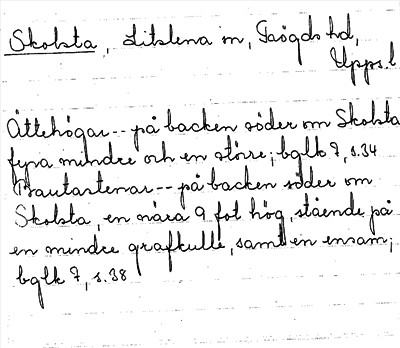 Skolsta, Litslena sn, Trögds hd,
Upps. l
Ättehögar -- på backen söder om Skolsta
fyra mindre och en större; bglk 7, s.34
Bautastenar -- på backen söder om
Skolsta, en nära 9 fot hög, stående på
en mindre grafkulle, samt en ensam;
bglk 7, s.38